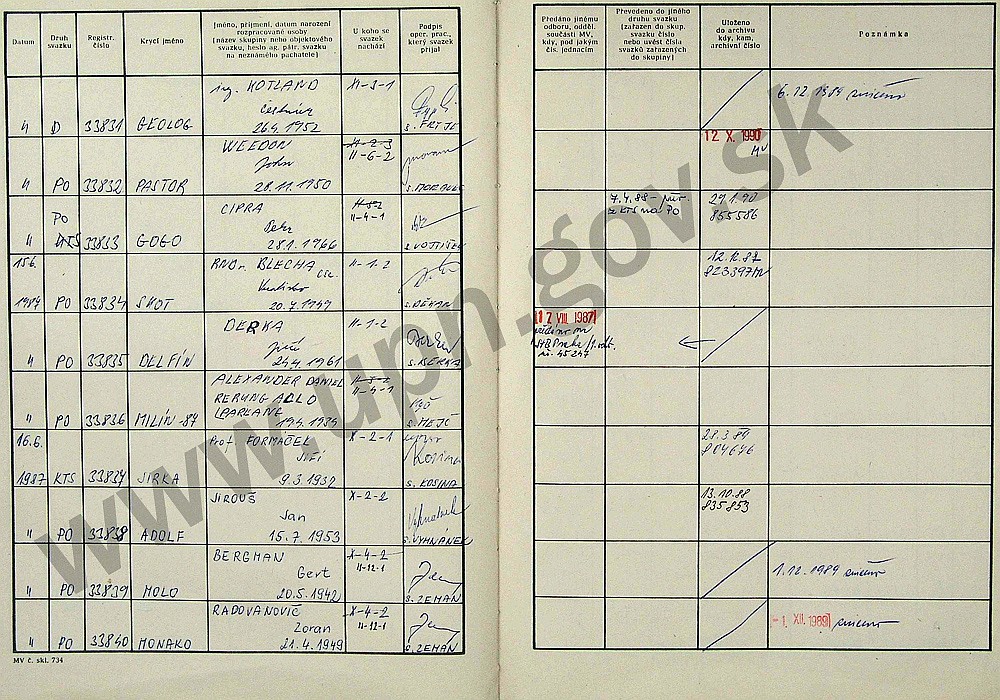 Datum
Druh
svazku
Registr.
číslo
Krycí jméno
Jméno, příjmení, datum narození
rozpracované osoby
(název skupiny nebo objektového
svazku, heslo ag. pátr. svazku
na neznámého pachatele)
U koho se
svazek
nachází
Podpis
oper. prac.,
který svazek
přijal
Předáno jinému
odboru, odděl.
součásti MV,
kdy, pod jakým
čís. jednacím
Převedeno do jiného
druhu svazku
(zařazen do skup.
svazku číslo
nebo uvést čísla
svazků zařazených
do skupiny)
Uloženo
do archivu
kdy, kam,
archivní číslo
Poznámka
ing. HOTLAND
XI-3-1
6.12.1989 zničeno
" D 33831 GEOLOG 26.4.1952
WEEDON
XI-2-3
12. X. 1990
John
II-6-2
MV
" PO 33832 PASTOR 28.11.1950
CIPRA
7.4.88
29.1.90
PO
Petr
II-4-1
z KTS na PO
855586
" KTS 33833 GOGO 28.1.1966
15.6.
RNDr. BLECHA CSc.
II-1-2
12.10.87
823397 MV
1987 PO 33834 SKOT 20.7.1949
DERKA
II-1-2
17. VIII. 1987
Jiří
" PO 33835 DELFÍN 24.4.1961
45247
ALEXANDER DANIEL
II-4-1
" PO 33836 MILÍN-84 19.4.1934
16.6.
Prof. FORMÁČEK
X-2-1
28.3.89
Jiří
864676
1987 KTS 33837 JIRKA 9.3.1932 s. KOSINA
JIROUŠ
X-2-2
13.10.88
Jan
835853
" PO 33838 ADOLF 15.7.1953 s. VYHNÁNEK
BERGMAN
X-4-2
Gert
II-12-1
1.12.1989 zničeno
" PO 33839 HOLO 20.5.1942 s. ZEMAN
RADOVANOVIČ
X-4-2
Zoran
II-12-1
-1. XII. 1989 zničeno
" PO 33840 MONAKO 21.4.1949 s. ZEMAN
MV č. skl. 734
www.upn.gov.sk